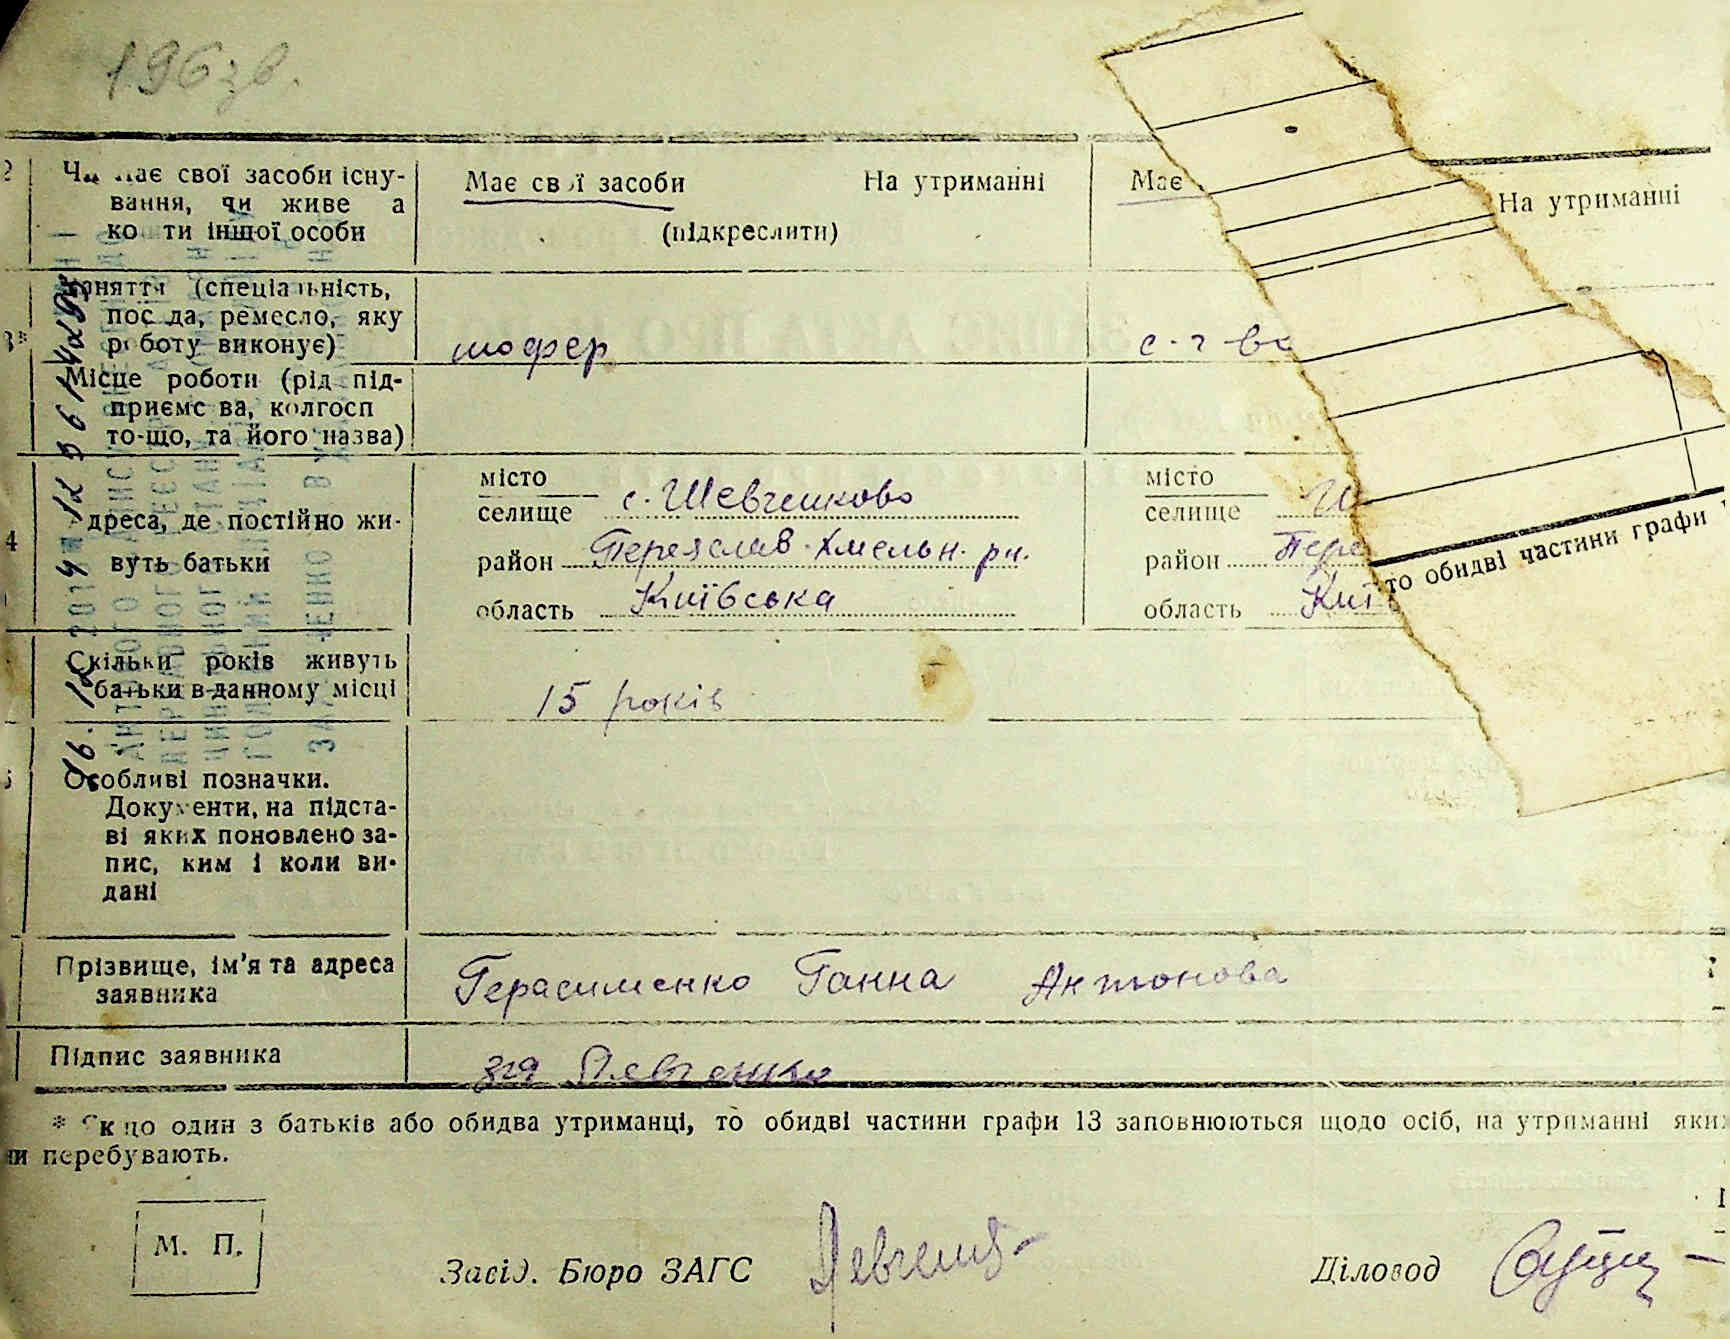 196зв.
2
Чи має свої засоби існу-
вання, чи живе за
ко ти іншої особи
Має свої засоби На утриманні
(підкреслити)
Має
На утриманні
3*
заняття (спеціальність,
посада, ремесло, яку
роботу виконує)
шофер
с-г
Місце роботи (рід під-
приємс ва, колгосп
то-що, та його назва)
4
дреса, де постійно жи-
вуть батьки
місто
селище с. Шевченково
район Переяслав-Хмельн. рн.
область Київська
місто
селище
район Пере
область Киї
то обидві частини графи
Скільки років живуть
батьки в данному місці
15 років
Особливі позначки.
Документи, на підста-
ві яких поновлено за-
пис, ким і коли ви-
дані
Прізвище, ім'я та адреса
заявника
Герасименко Ганна Антонова
Підпис заявника
* Якщо один з батьків або обидва утриманці, то обидві частини графи 13 заповнюються щодо осіб, на утриманні яких
перебувають.
М. П.
Завід. Бюро ЗАГС
Діловод